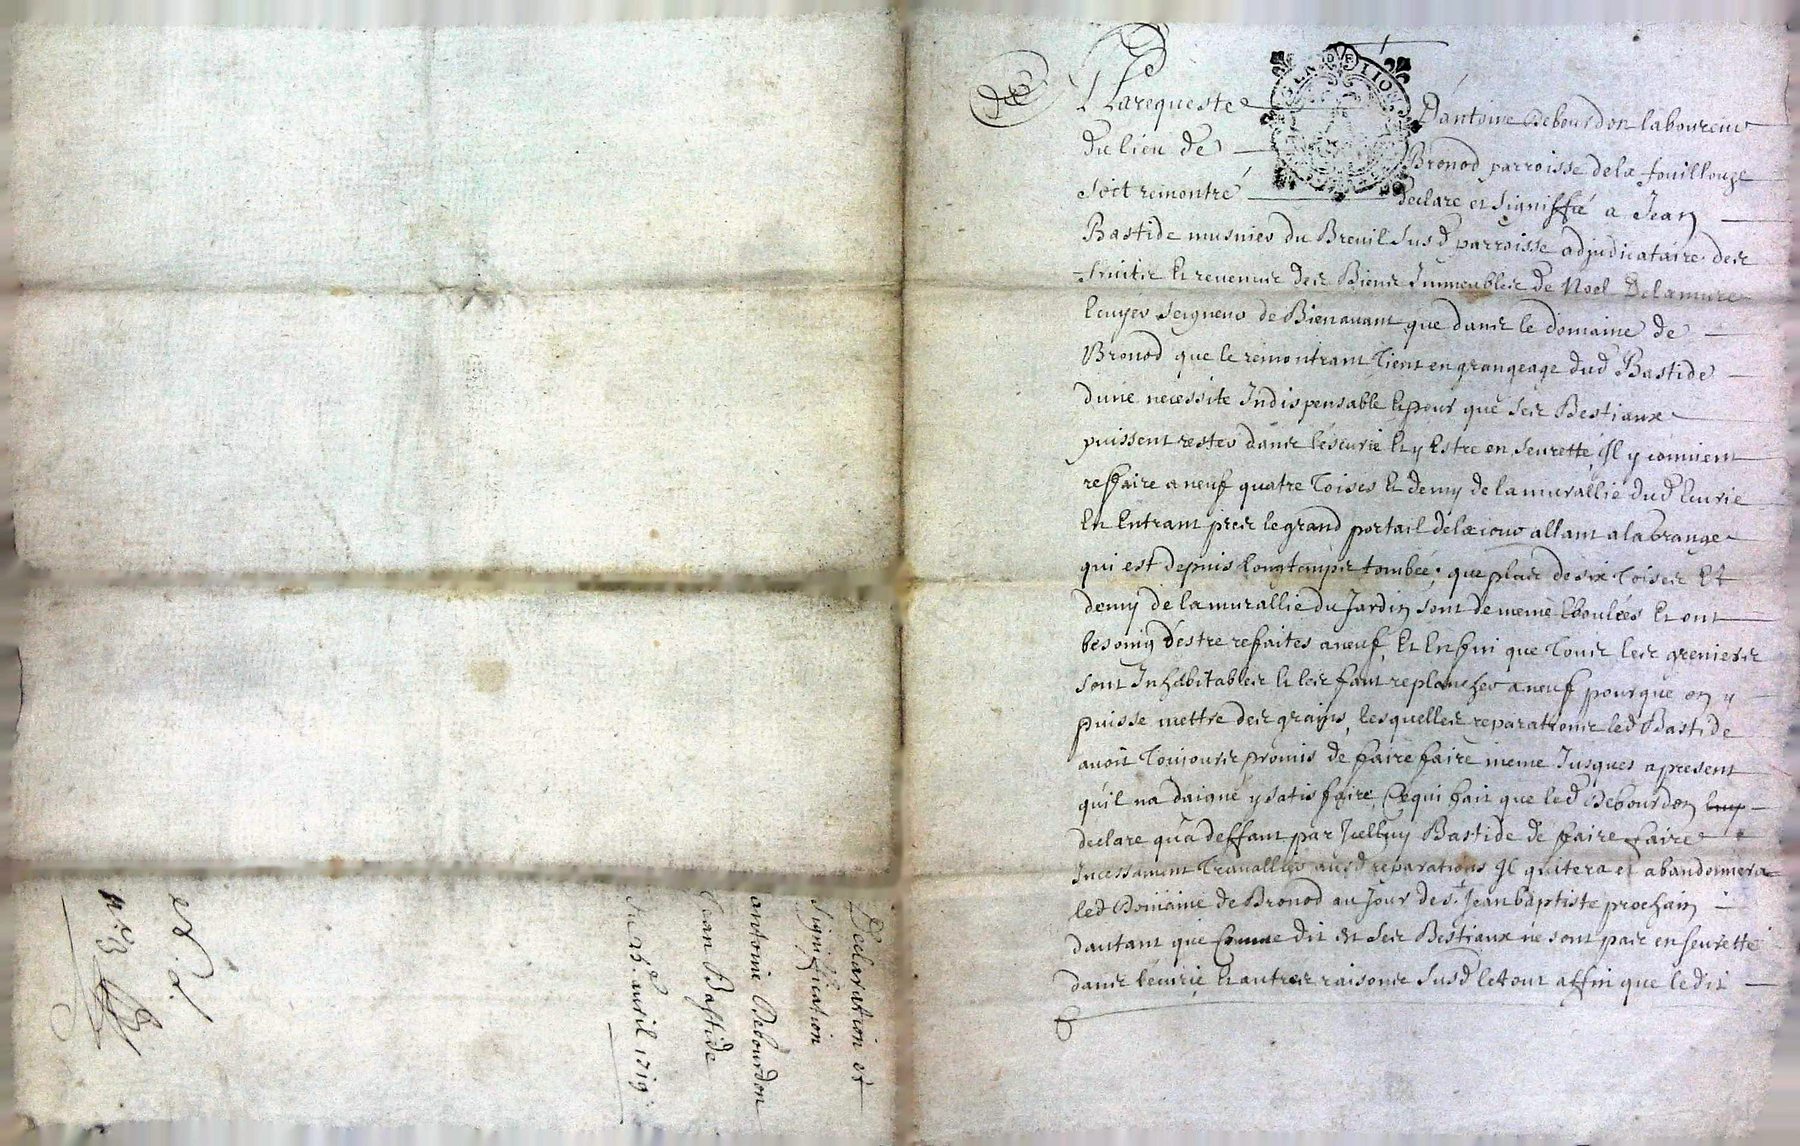 A la requeste D'antoine Debourdon laboureur
du lieu de Bronod parroisse de la fouillouze
soit remontré declaré et signiffié a Jean
Bastide musnier du Breuil susd parroisse adjudicataire des
fruits et revenus des Biens Immeubles de Noel Delamure
Ecuyer seigneur de Bienavant que dans le domaine de
Bronod que le remontrant tient en grangeage dud Bastide
dune necessité Indispensable et pour que ses Bestiaux
puissent rester dans l'escurie et y Estre en seurette Il y convient
reffaire a neuf quatre toises et demy de la murallie dud Ecurie
En Entrant pres le grand portail de la cour allant a la Grange
qui est depuis longtemps tombée, que plus de six toises Et
demy de la murallie du Jardin sont de meme Eboulées et ont
besoing d'estre refaites a neuf, Et Enfin que tous les greniers
sont Inhabitables et les faut replancher a neuf pour que on y
puisse mettre des grains, lesquelles reparations led Bastide
avoit toujours promis de faire faire meme Jusques a present
quil na daigné y satisfaire, Ce qui fait que led Debourdon
declare qu'a deffaut par Icelluy Bastide de faire faire
Incessament travallier ausd reparations Il quitera et abandonnera
led Domaine de Bronod au Jour de s. Jean baptiste prochain
dautant que comme dit est ses Bestiaux ne sont pas en seurette
dans l'ecurie et autres raisons susd le tout affin que le dit
Declaration et
signification
antoine Debourdon
Jean Bastide
Du 25.e avril 1719